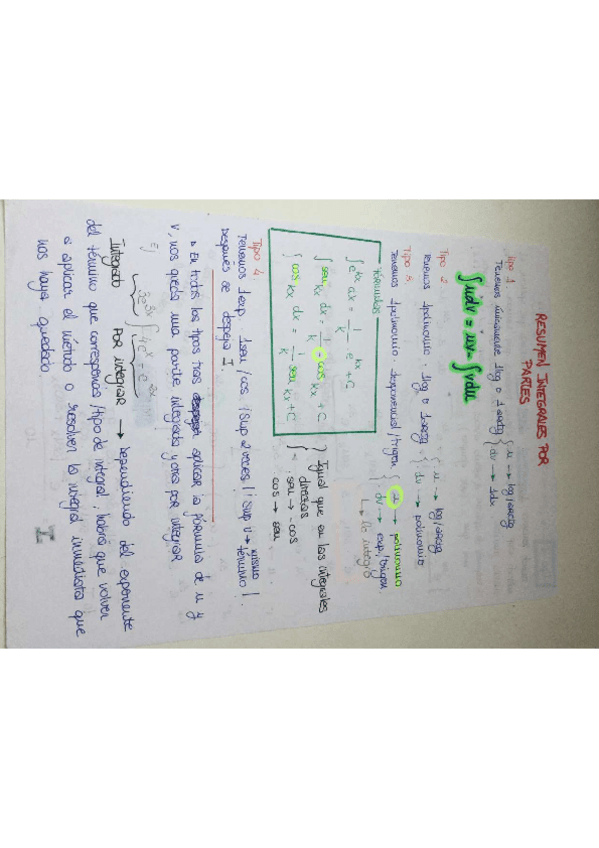 RESUMEN INTEGRALES POR
PARTES
Tipo 1
Tenemos únicamente 1log o 1 arctg { u → log/arctg
dv → 1dx
∫udv = uv - ∫vdu
Tipo 2
Tenemos 1polinomio · 1log o 1arctg { u → log/arctg
dv → polinomio
Tipo 3
Tenemos 1polinomio · 1exponencial/trigon { u → polinomio
dv → exp/trigon
↳ lo integro
Fórmulas
∫ e^kx dx = 1/k · e^kx + C
∫ sen kx dx = 1/k - cos kx + C
∫ cos kx dx = 1/k sen kx + C
} Igual que en las integrales
directas
sen → -cos
cos → sen
Tipo 4:
Tenemos 1exp · 1sen/cos | Sup 2 veces | Sup u → mismo
término |
Después se despeja I.
En todos los tipos tras aplicar la fórmula de u y
v, nos queda una parte integrada y otra por integrar
Ej
Integrado Por integrar → Dependiendo del exponente
del término que corresponda/tipo de integral, habrá que volver
a aplicar el método o resolver la integral inmediata que
nos haya quedado.